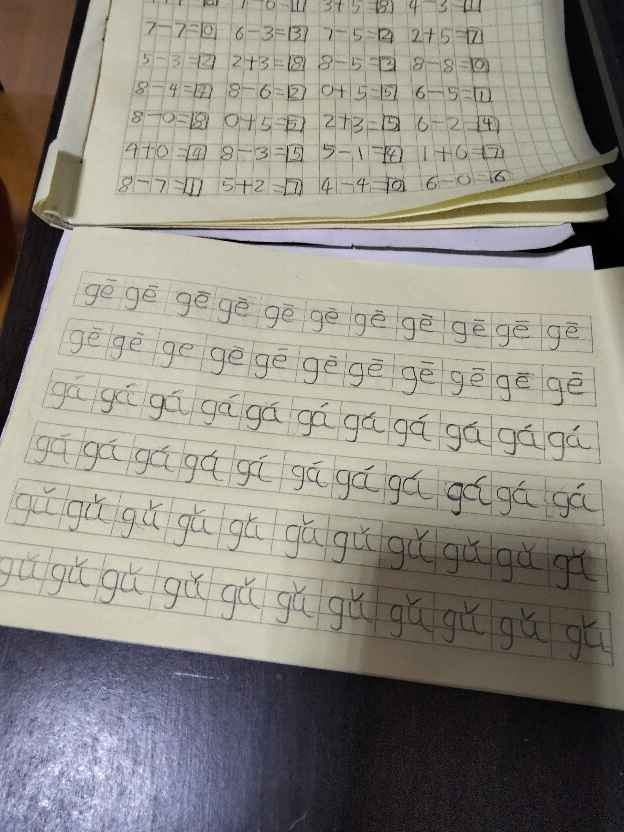 3+5=8 4-3=1
7-7=0 6-3=3 7-5=2 2+5=7
5-3=2 2+3=8 8-5=3 8-8=0
8-4=4 8-6=2 0+5=5 6-5=1
8-0=8 0+5=5 2+3=5 6-2=4
4+0=4 8-3=5 5-1=4 1+6=7
8-7=1 5+2=7 4-4=0 6-0=6
gē gē gē gē gē gē gē gē gē gē gē
gē gē ge gē gē gē gē gē gē gē gē
gá gá gá gá gá gá gá gá gá gá gá
gá gá gá gá gá gá gá gá gá gá gá
gǔ gǔ gǔ gǔ gǔ gǔ gǔ gǔ gǔ gǔ gǔ
gǔ gǔ gǔ gǔ gǔ gǔ gǔ gǔ gǔ gǔ gǔ